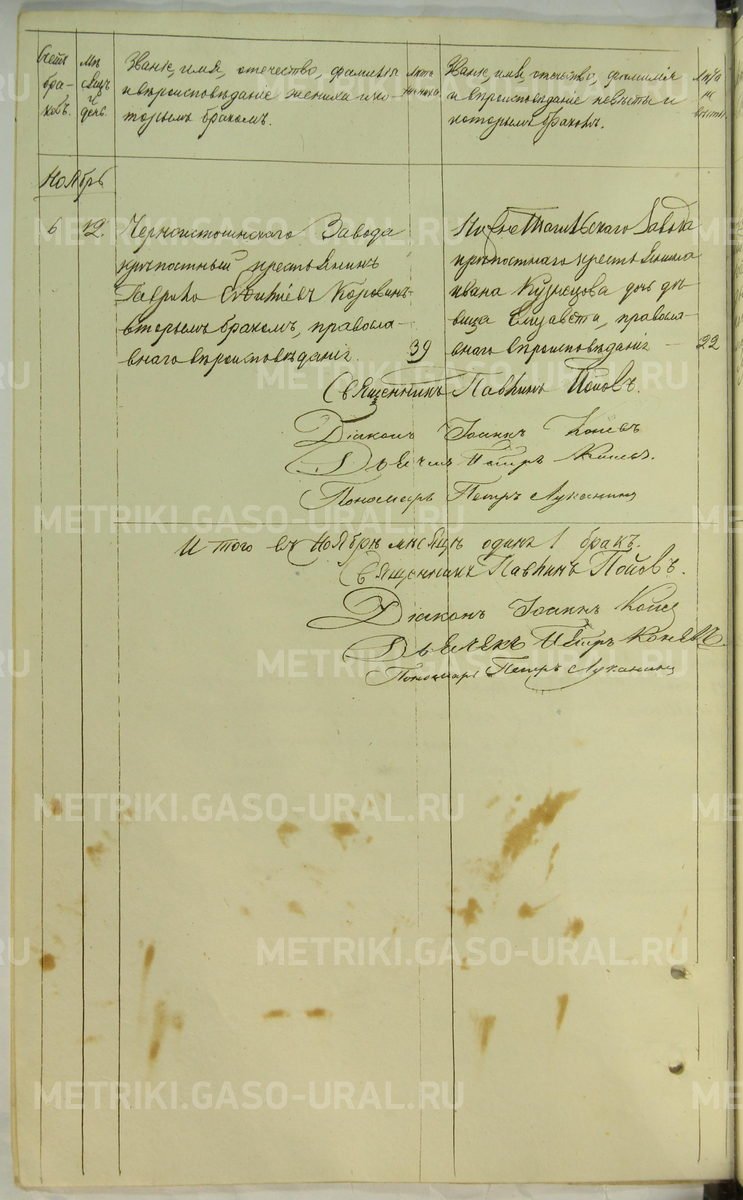 Счетъ браковъ.
Мѣсяцъ и день.
Званіе, имя, отечество, фамилія
и вѣроисповѣданіе жениха и ко-
торымъ бракомъ.
Лѣта жениха.
Званіе, имя, отечество, фамилія
и вѣроисповѣданіе невѣсты и
которымъ бракомъ.
Лѣта невѣсты.
Ноябрь
6 12. Черноисточинскаго Завода
крѣпостный крестьянинъ
Гаврило Коровинъ
вторымъ бракомъ, правосла-
внаго вѣроисповѣданія. 39
Нижнетагильскаго Завода
крѣпостнаго крестьянина
Ивана Кузнецова дочь дѣ-
вица Елизавета, правосла-
внаго вѣроисповѣданія 22
Священникъ Павлинъ Поповъ.
Діаконъ Іоаннъ
Дьячекъ Петръ
Пономарь Петръ Луканинъ
Итого въ Ноябрѣ мѣсяцѣ одинъ 1 бракъ.
Священникъ Павлинъ Поповъ.
Діаконъ Іоаннъ
Дьячекъ Петръ Коневъ.
Пономарь Петръ Луканинъ
METRIKI.GASO-URAL.RU